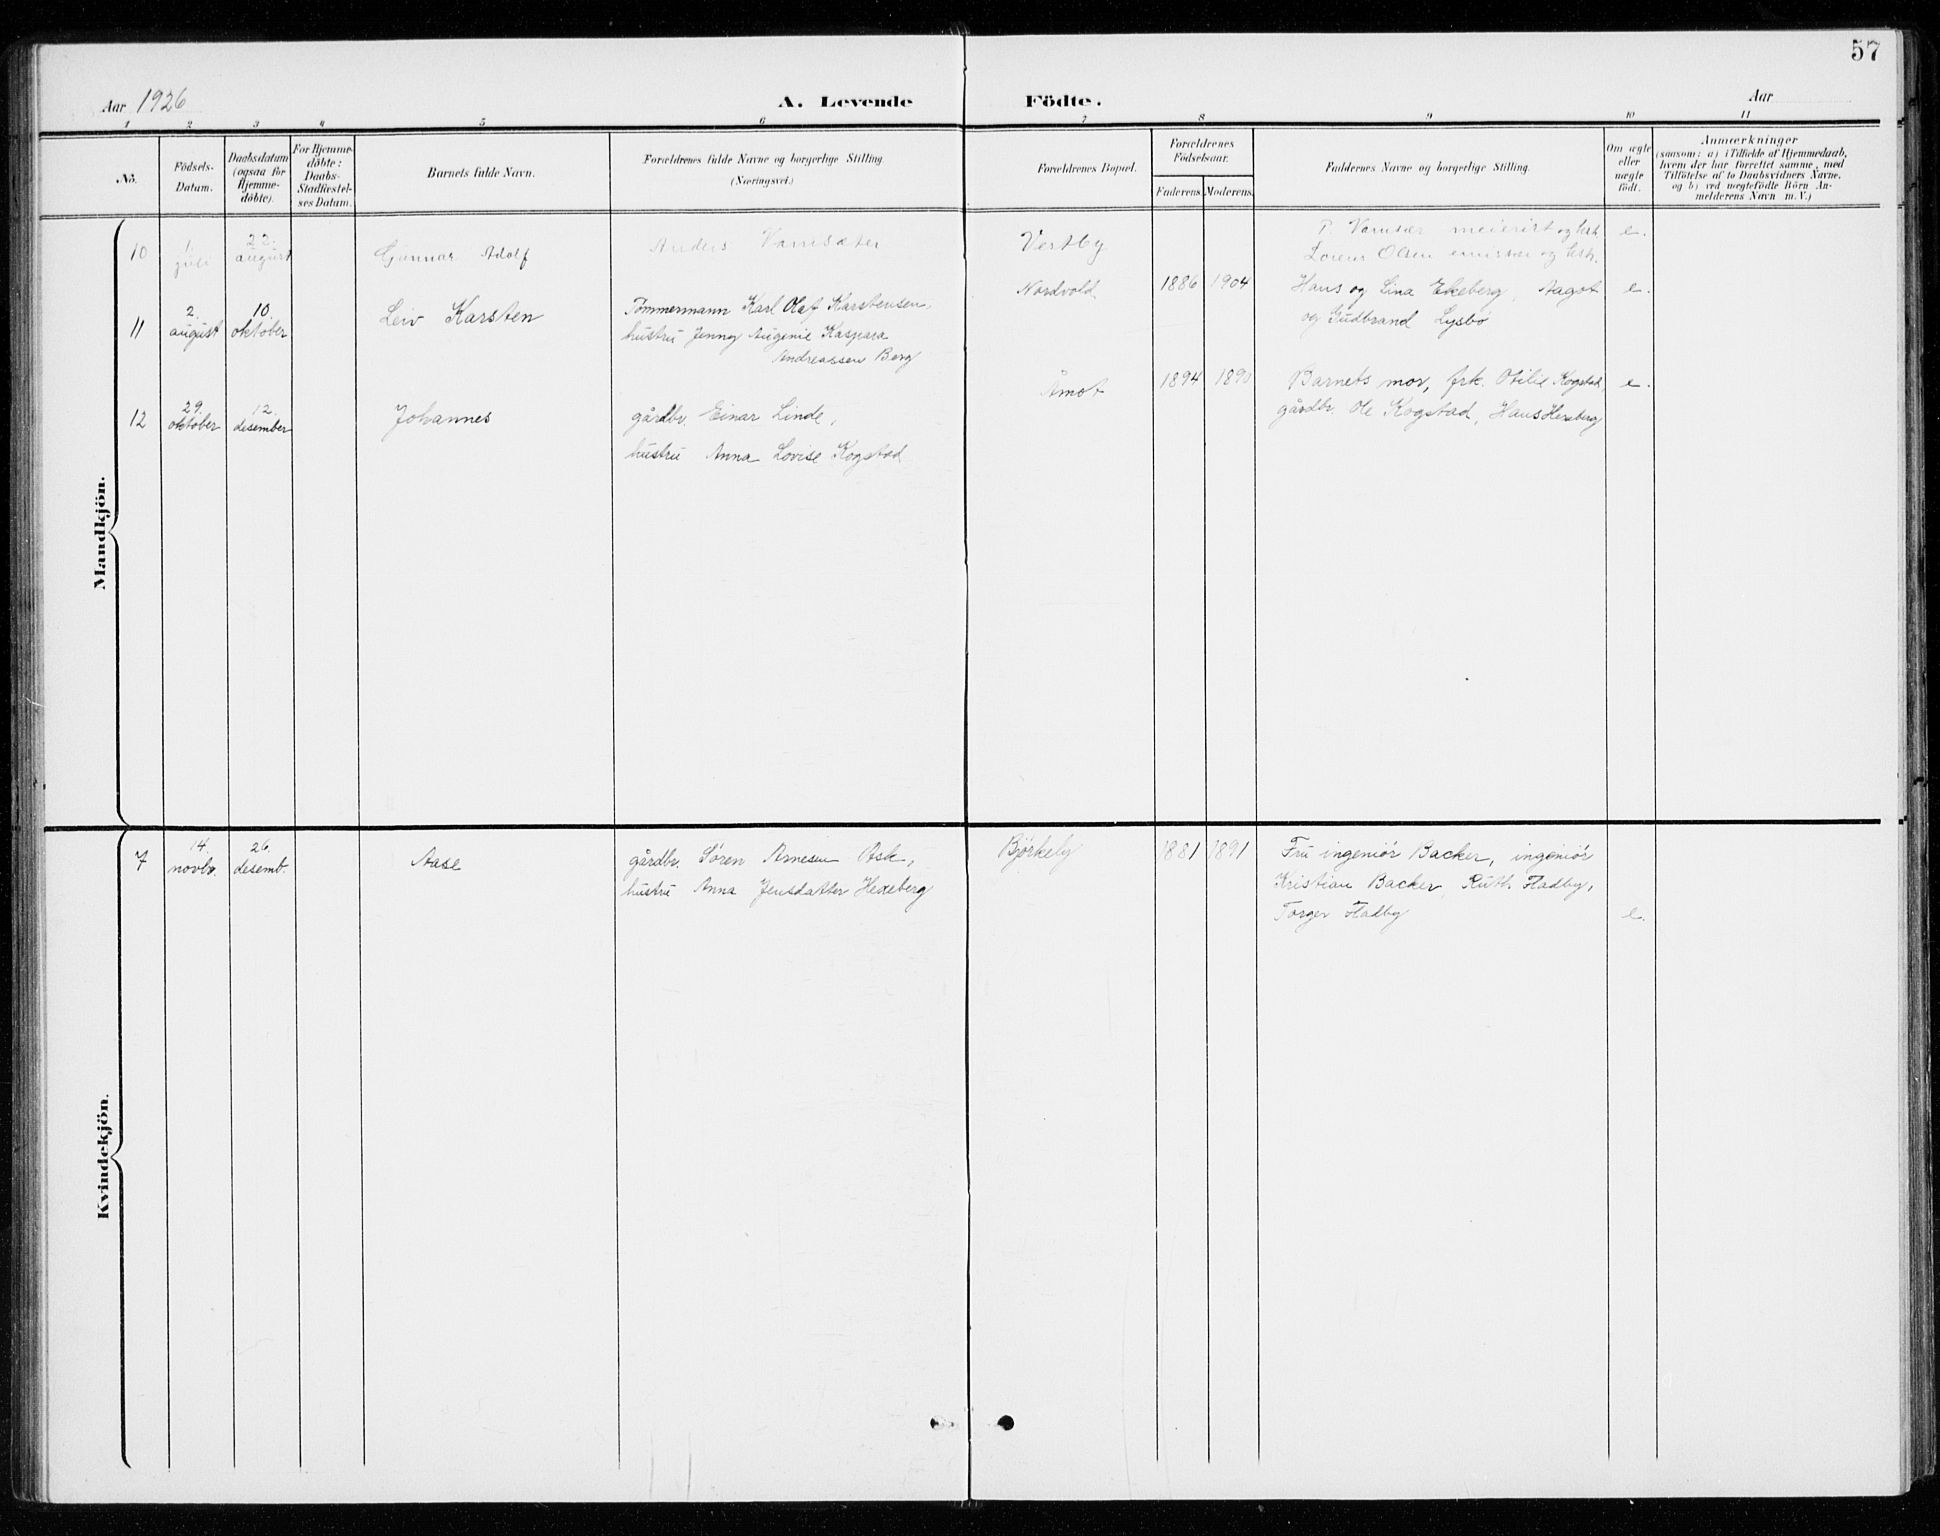 57
Aar 1926
A. Levende Födte.
Aar
1 2 3 4 5 6 7 8 9 10 11
No.
Födsels-
Datum.
Daabsdatum
(ogsaa for
Hjemme-
döbte).
For Hjemme-
döbte:
Daabs-
Stadfæstel-
ses Datum.
Barnets fulde Navn.
Forældrenes fulde Navne og borgerlige Stilling.
(Næringsvei.)
Forældrenes Bopæl.
Forældrenes
Födselsaar.
Faderens. Moderens.
Faddernes Navne og borgerlige Stilling.
Om ægte
eller
uægte
födt.
Anmærkninger
(saasom: a) i Tilfælde af Hjemmedaab,
hvem der har forrettet samme, med
Tilföielse af to Daabsvidners Navne.
og b) ved uægtefödte Börn An-
melderens Navn m. V.)
Mandkjön.
10
1. juli
22. august
Gunnar Adolf
Anders Vamsæter
Vestby
P. Vamsær meierist og hst.
Lorens Olsen emissær og hst.
e.
11
2. august
10. oktober
Leiv Karsten
Tømmermann Karl Olaf Karstensen,
hustru Jenny Augenie Kaspara
Andreassen Berg
Nordvold
1886 1904
Hans og Lina Ekeberg, Aagot
og Gudbrand Lysbø
e.
12
29. oktober
12. desember
Johannes
gårdbr. Einar Linde,
hustru Anna Lovise Kogstad
Åmot
1894 1890
Barnets mor, frk. Otilie Kogstad,
gårdbr. Ole Kogstad, Hans Hexeberg
e.
Kvindekjön.
7
14. novbr.
26. desemb.
Aase
gårdbr. Søren Arnesen Ask,
hustru Anna Jensdatter Hexeberg
Bjørkely
1881 1891
Fru ingeniør Backer, ingeniør
Kristian Backer, Ruth Fladby,
Torger Fladby
e.